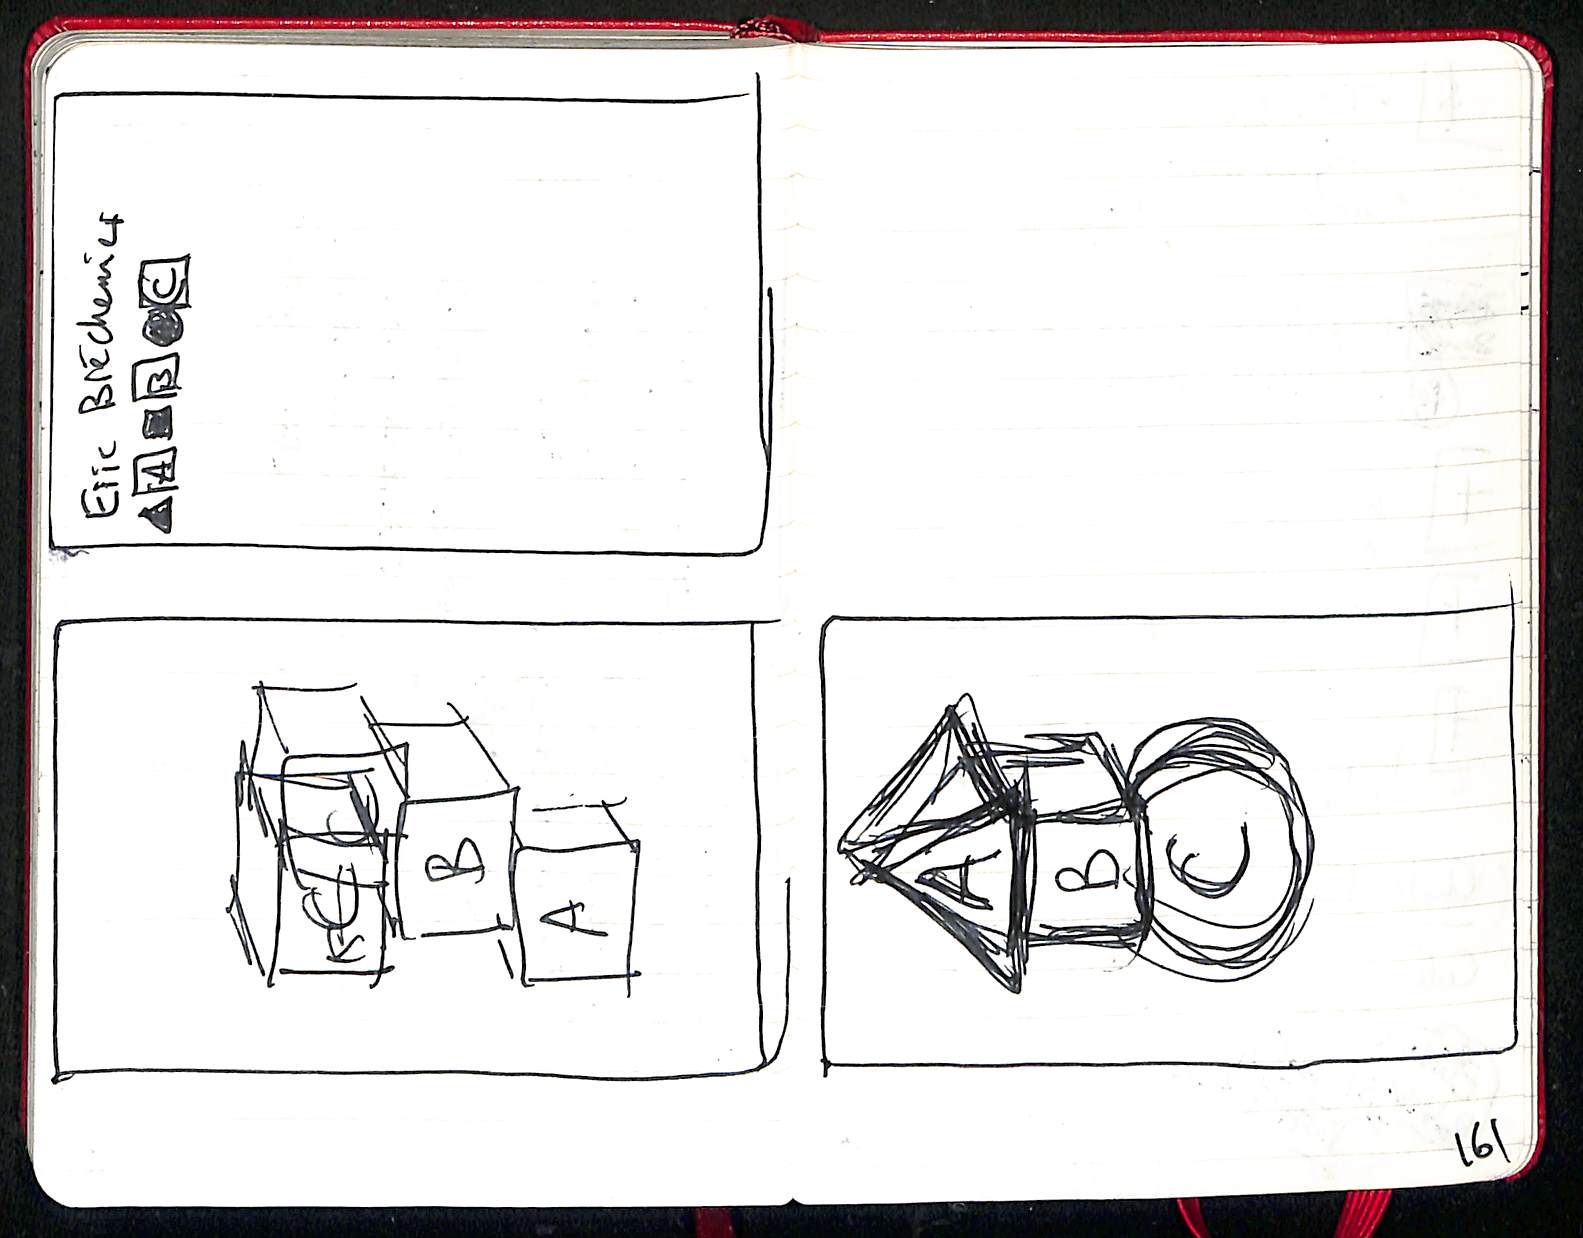 Eric Bréchemier
A B C
C
B
A
A
B
C
161